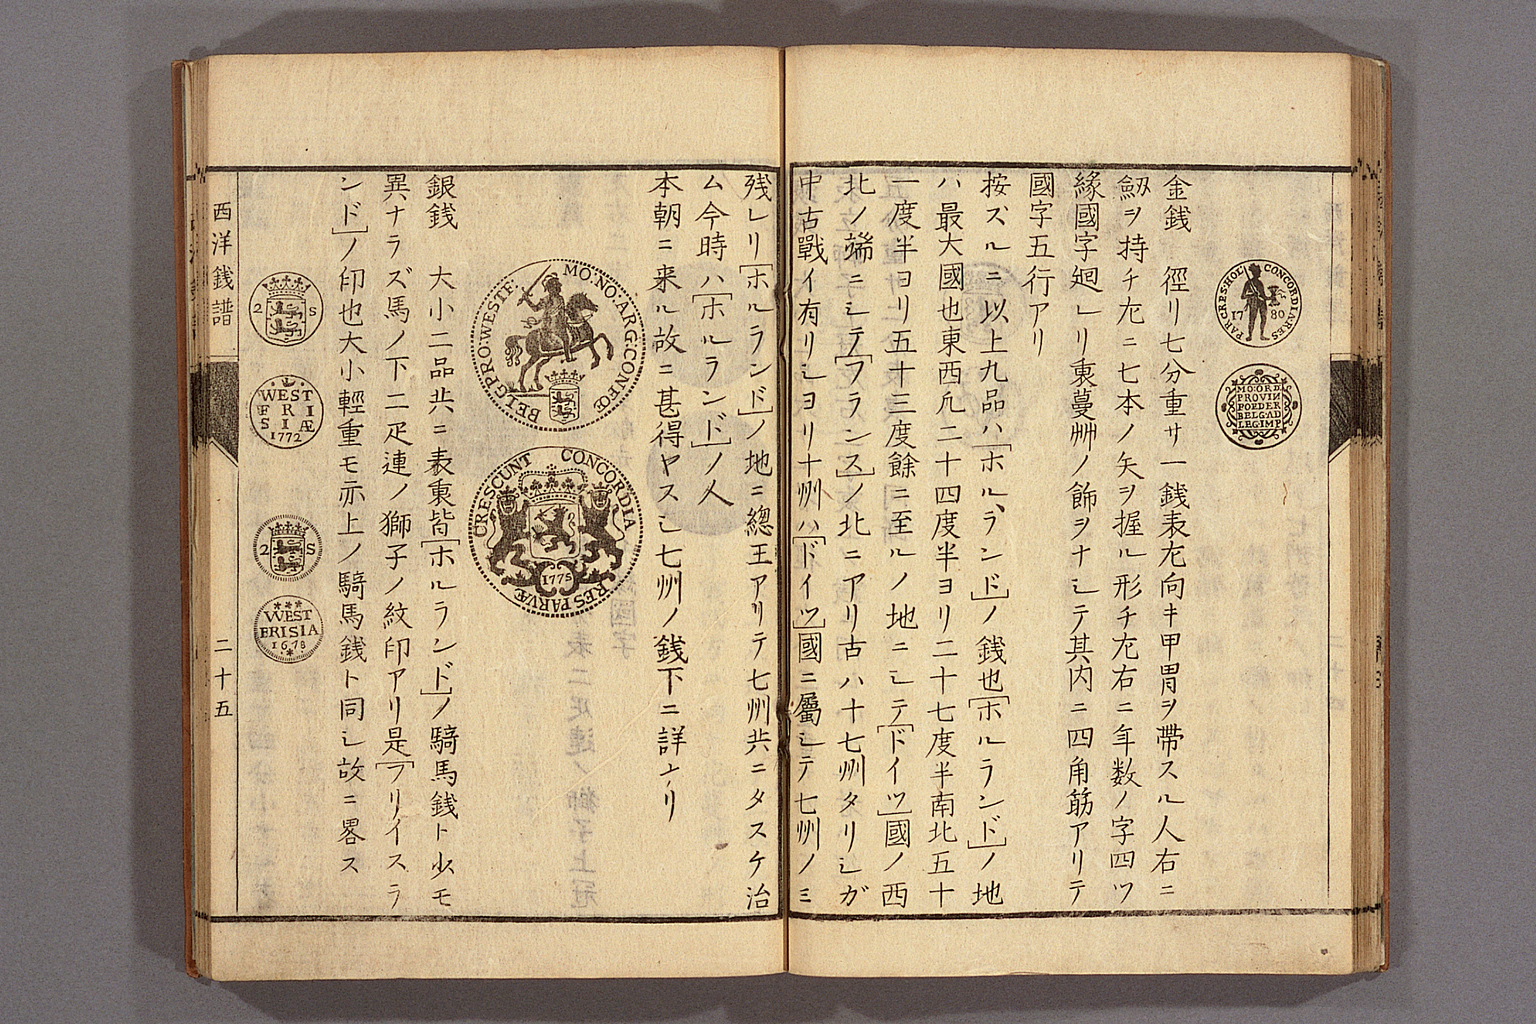 PAR·CRES·HOL CONCORDIA RES
1780
MO:ORD
PROVIN
FOEDER
BELG·AD
LEG·IMP
金銭　徑リ七分重サ一銭表左向キ甲冑ヲ帶スル人右ニ
劔ヲ持チ左ニ七本ノ矢ヲ握ル形チ左右ニ年数ノ字四ツ
緣國字廻レリ裏蔓艸ノ飾ヲナシテ其内ニ四角筋アリテ
國字五行アリ
按ズルニ以上九品ハ「ホルランド」ノ銭也「ホルランド」ノ地
ハ最大國也東西凢二十四度半ヨリ二十七度半南北五十
一度半ヨリ五十三度餘ニ至ルノ地ニシテ「ドイツ」國ノ西
北ノ端ニシテ「フランス」ノ北ニアリ古ハ十七州タリシガ
中古戰イ有リシヨリ十州ハ「ドイツ」國ニ屬シテ七州ノミ
残レリ「ホルランド」ノ地ニ總王アリテ七州共ニタスケ治
ム今時ハ「ホルランド」ノ人
本朝ニ来ル故ニ甚得ヤスシ七州ノ銭下ニ詳ナリ
MO:NO:ARG:CONFOE BELG:PRO:WESTF:
CONCORDIA RES PARVÆ CRESCUNT
1775
銀銭　大小二品共ニ表裏皆「ホルランド」ノ騎馬銭ト少モ
異ナラズ馬ノ下二疋連ノ獅子ノ紋印アリ是「フリイスラ
ンド」ノ印也大小輕重モ亦上ノ騎馬銭ト同シ故ニ畧ス
2 S
WEST
FRI
SIÆ
1772
2 S
WEST
FRISIA
1678
西洋銭譜
二十五